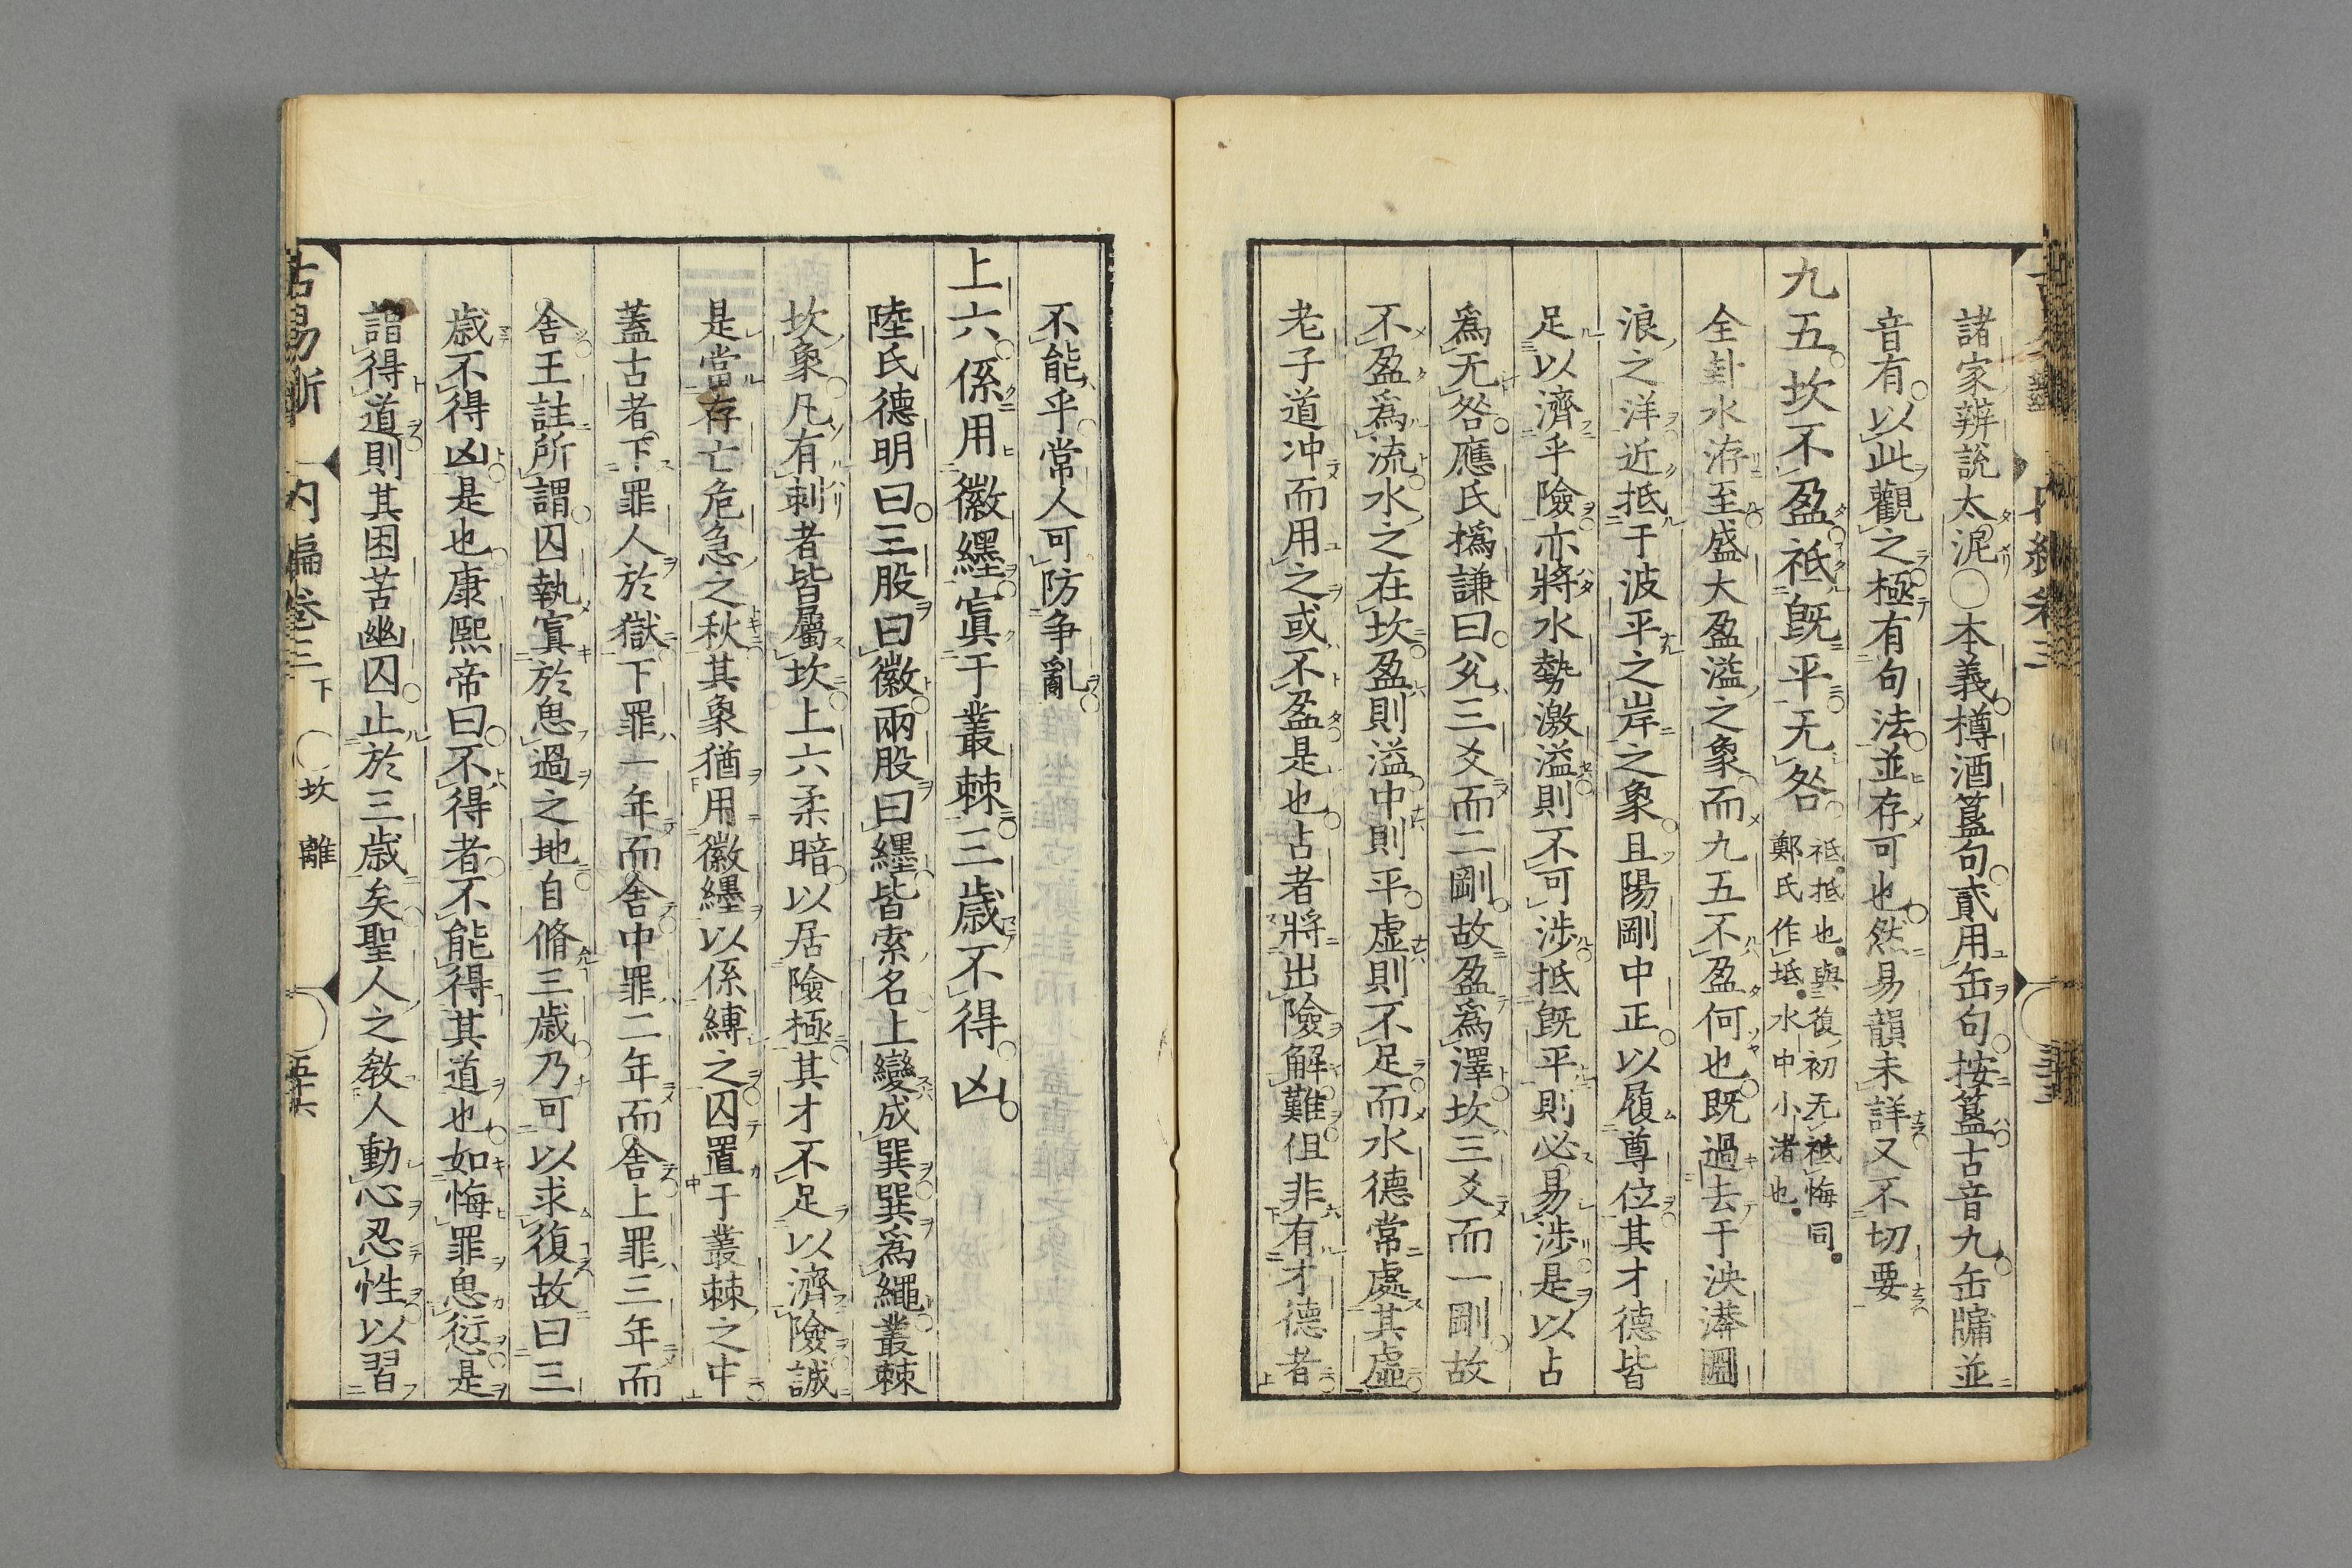 諸家辨說太泥○本義樽酒簋句貳用缶句按簋古音九缶牖並
音有以此觀之極有句法並存可也然易韻未詳又不切要
九五坎不盈祗旣平无咎
祗抵也與復初无祗悔同
鄭氏作坻水中小渚也
全卦水洊至盛大盈溢之象而九五不盈何也既過去于泱漭圖
浪之洋近抵于波平之岸之象且陽剛中正以履尊位其才德皆
足以濟乎險亦將水勢激溢則不可涉抵旣平則必易涉是以占
爲无咎應氏撝謙曰兌三爻而二剛故盈爲澤坎三爻而一剛故
不盈爲流水之在坎盈則溢中則平虛則不足而水德常處其虛
老子道冲而用之或不盈是也占者將出險解難但非有才德者
不能乎常人可防争亂
上六係用徽纆寘于叢棘三歲不得凶
陸氏德明曰三股曰徽兩股曰纆皆索名上變成巽巽爲繩叢棘
坎象凡有刺者皆屬坎上六柔暗以居險極其才不足以濟險誠
是當存亡危急之秋其象猶用徽纆以係縛之囚置于叢棘之中
蓋古者下罪人於獄下罪一年而舍中罪二年而舍上罪三年而
舍王註所謂囚執寘於思過之地自脩三歲乃可以求復故曰三
歲不得凶是也康熙帝曰不得者不能得其道也如悔罪思愆是
謂得道則其困苦幽囚止於三歲矣聖人之敎人動心忍性以習
古易斷 內編卷三下 ○坎 離 五十六